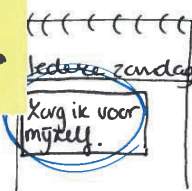 Iedere zondag
Zorg ik voor
mijzelf.